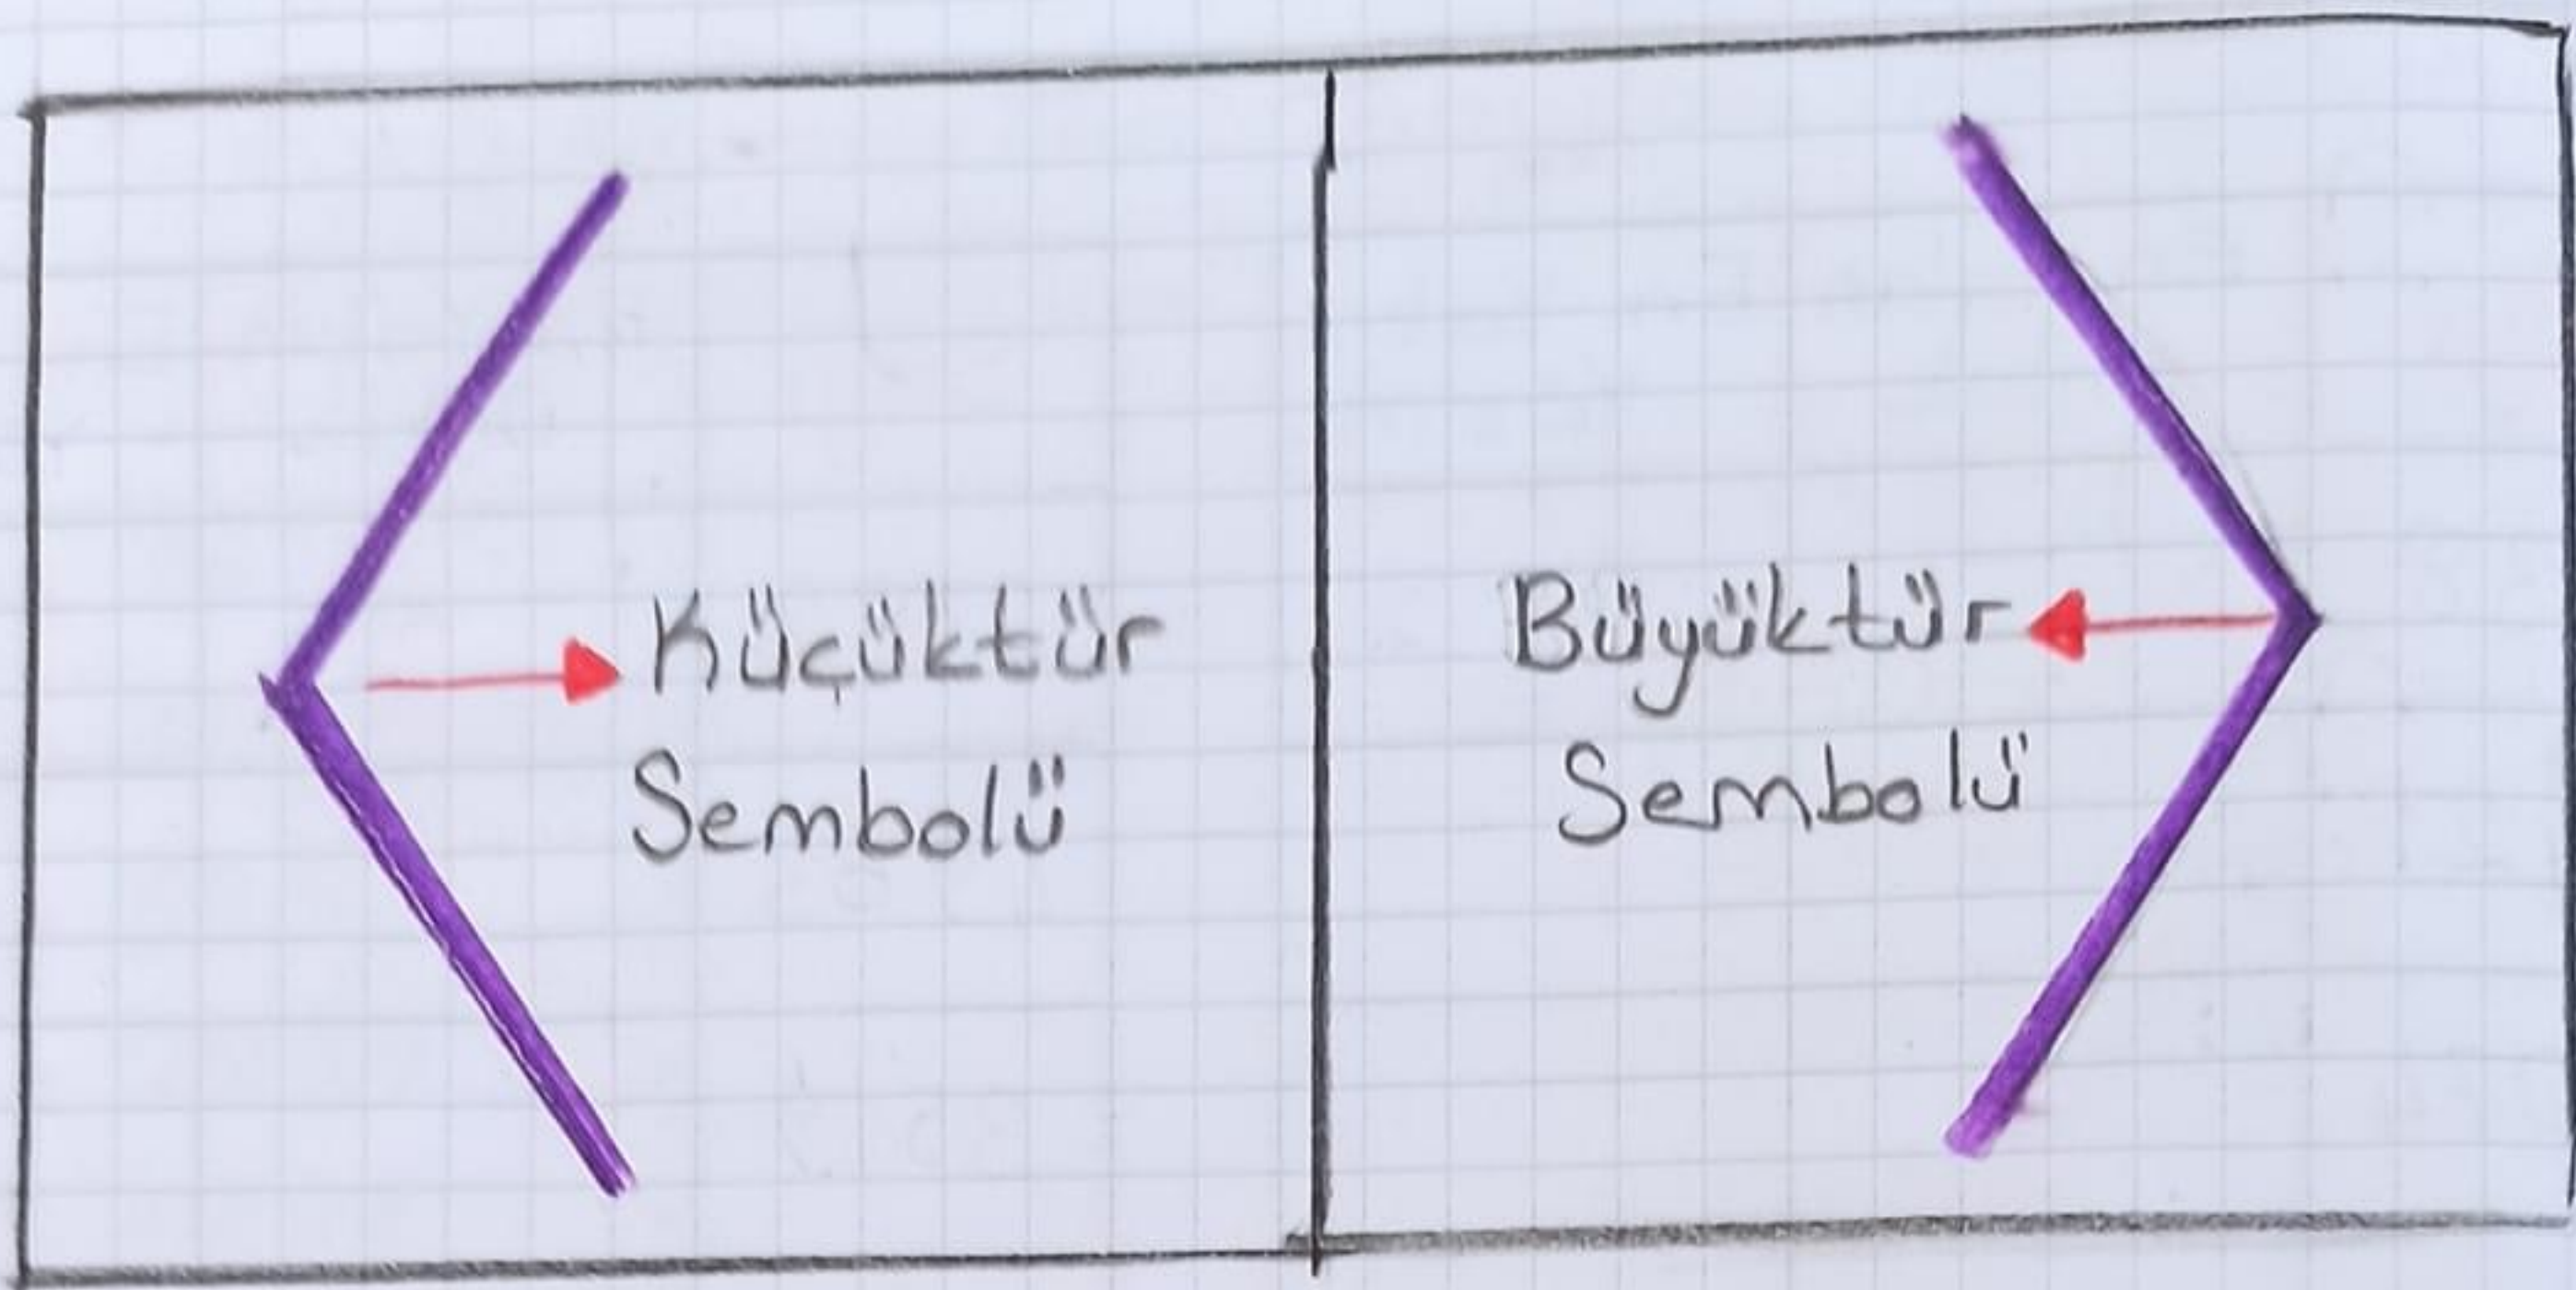 Küçüktür
Sembolü
Büyüktür
Sembolü